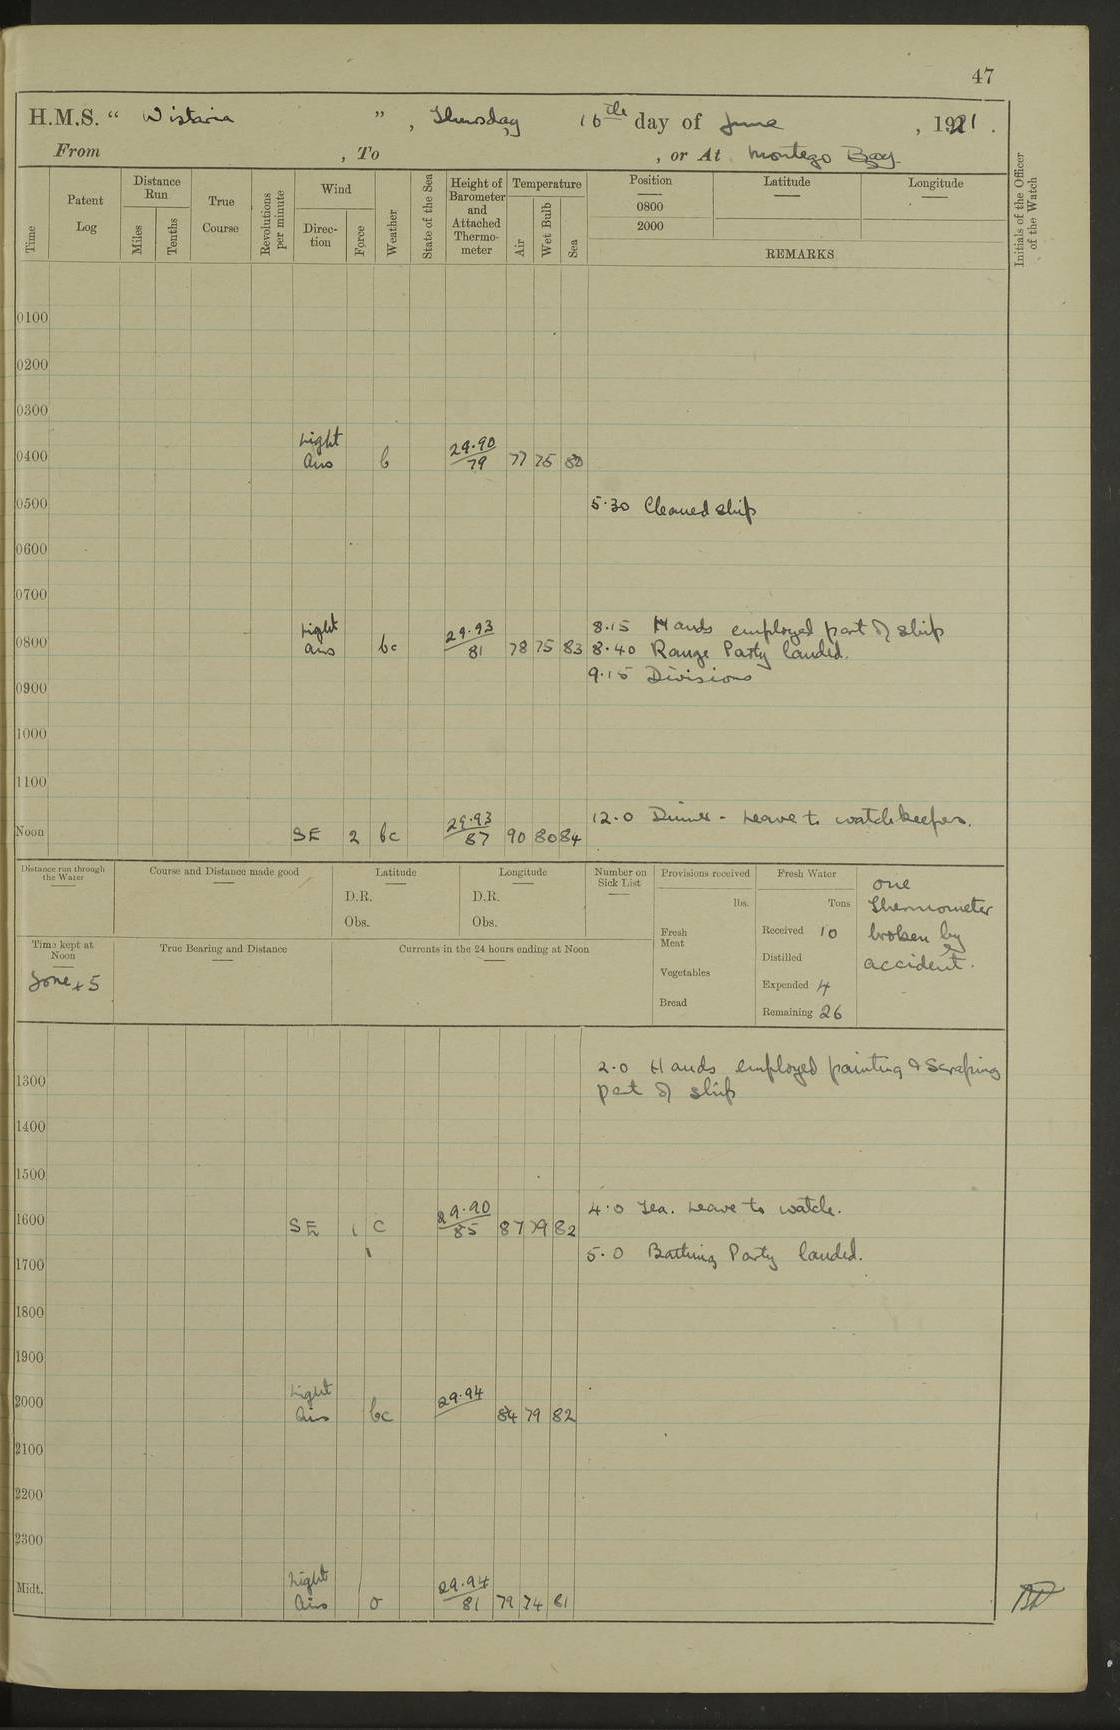 47
H.M.S. “ Wistaria ” , Thursday 16th day of June , 1921 .
From , To , or At Montego Bay.
Time
Patent Log
Distance Run
Miles
Tenths
True Course
Revolutions per minute
Wind
Direction
Force
Weather
State of the Sea
Height of Barometer and Attached Thermometer
Temperature
Air
Wet Bulb
Sea
Position
0800
2000
Latitude
Longitude
REMARKS
Initials of the Officer of the Watch
0100
0200
0300
0400 Light Airs b 29.90 79 77 75 80
0500 5.30 Cleaned ship
0600
0700
8.15 Hands employed part of ship
0800 Light airs bc 29.93 81 78 75 83 8.40 Range Party landed.
0900 9.15 Divisions
1000
1100
12.0 Dinner - Leave to watchkeepers.
Noon SE 2 bc 29.93 87 90 80 84
Distance run through the Water
Course and Distance made good
Latitude
D.R.
Obs.
Longitude
D.R.
Obs.
Number on Sick List
Provisions received
lbs.
Fresh Meat
Vegetables
Bread
Fresh Water
Tons
Received 10
Distilled
Expended 4
Remaining 26
one
thermometer
broken by
accident.
Time kept at Noon
Zone + 5
True Bearing and Distance
Currents in the 24 hours ending at Noon
2.0 Hands employed painting & scraping
1300 part of ship
1400
1500
4.0 Tea. Leave to watch.
1600 SE 1 c 29.90 85 87 79 82
5.0 Bathing Party landed.
1700
1800
1900
2000 Light Airs bc 29.94 84 79 82
2100
2200
2300
Midt. Light Airs o 29.94 81 79 74 81